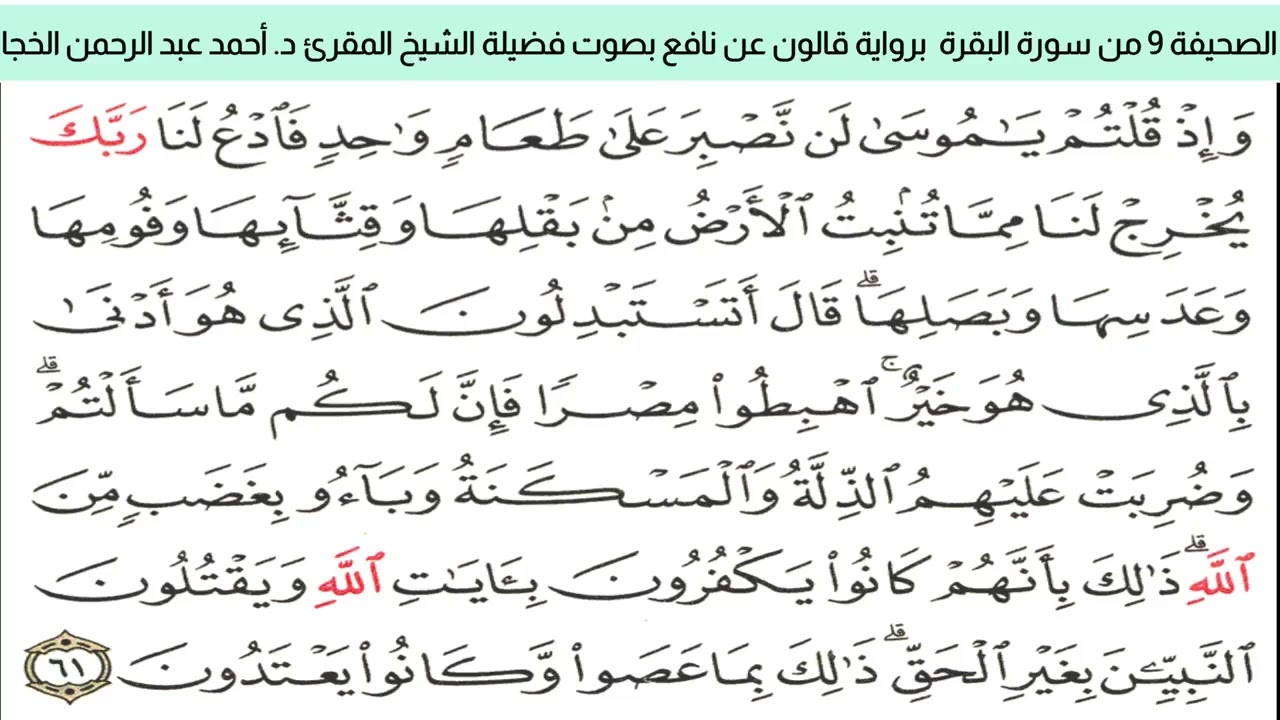 الصحيفة 9 من سورة البقرة برواية قالون عن نافع بصوت فضيلة الشيخ المقرئ د. أحمد عبد الرحمن الخجا
وَإِذْ قُلْتُمْ يَٰمُوسَىٰ لَن نَّصْبِرَ عَلَىٰ طَعَامٍ وَٰحِدٍ فَٱدْعُ لَنَا رَبَّكَ
يُخْرِجْ لَنَا مِمَّا تُنۢبِتُ ٱلْأَرْضُ مِنۢ بَقْلِهَا وَقِثَّآئِهَا وَفُومِهَا
وَعَدَسِهَا وَبَصَلِهَاۖ قَالَ أَتَسْتَبْدِلُونَ ٱلَّذِى هُوَ أَدْنَىٰ
بِٱلَّذِى هُوَ خَيْرٌۚ ٱهْبِطُوا۟ مِصْرًا فَإِنَّ لَكُم مَّا سَأَلْتُمْۖ
وَضُرِبَتْ عَلَيْهِمُ ٱلذِّلَّةُ وَٱلْمَسْكَنَةُ وَبَآءُو بِغَضَبٍ مِّنَ
ٱللَّهِۖ ذَٰلِكَ بِأَنَّهُمْ كَانُوا۟ يَكْفُرُونَ بِـَٔايَٰتِ ٱللَّهِ وَيَقْتُلُونَ
ٱلنَّبِيِّـِٕنَ بِغَيْرِ ٱلْحَقِّۖ ذَٰلِكَ بِمَا عَصَوا۟ وَّكَانُوا۟ يَعْتَدُونَ ٦١